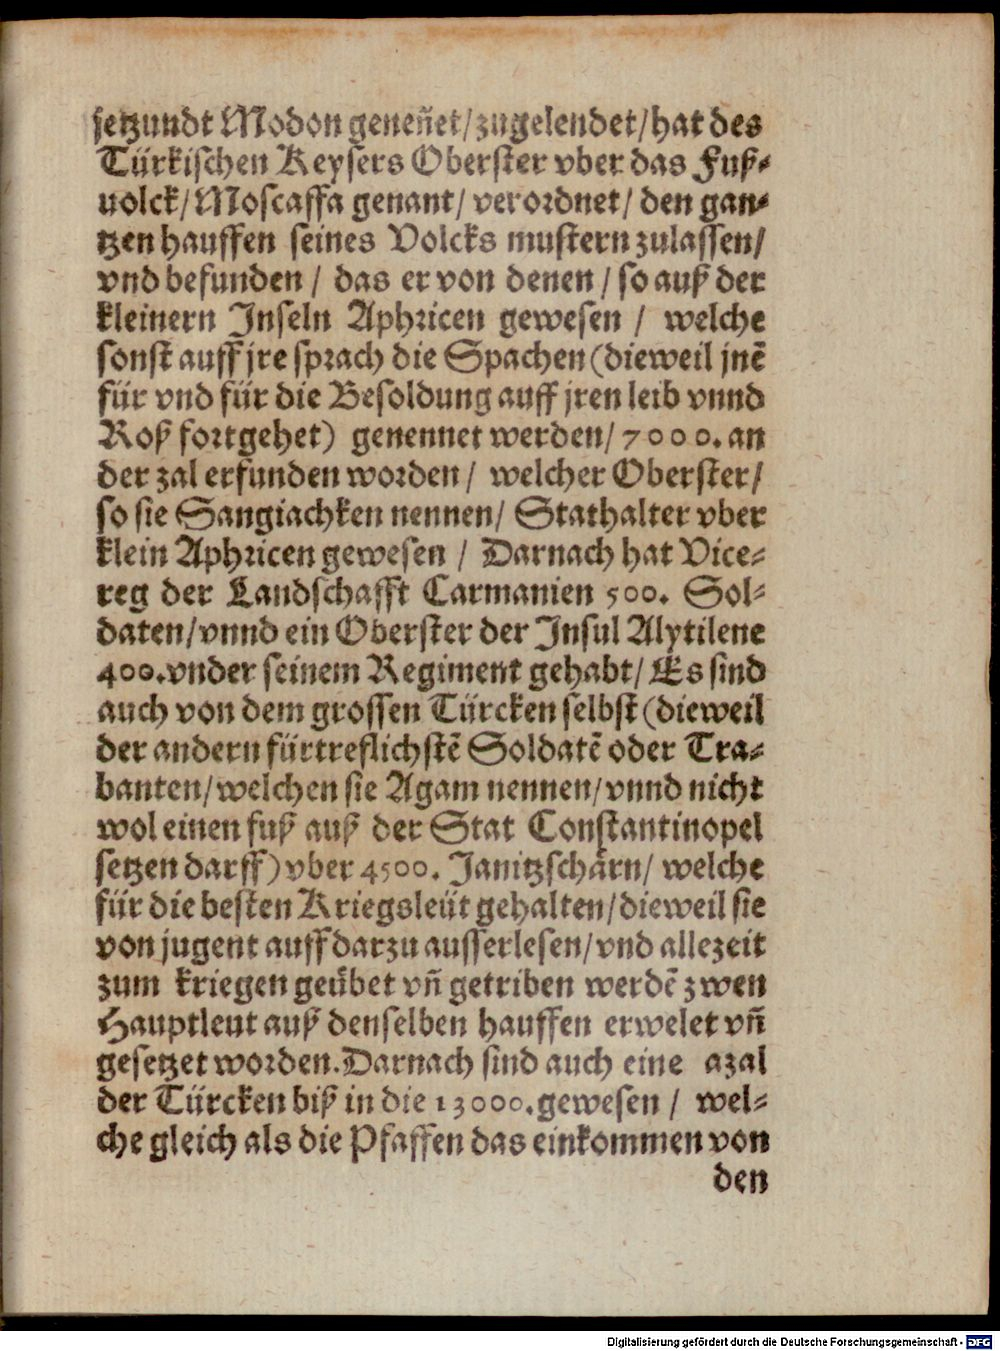 jetzundt Modon geneñet/zugelendet/hat des
Türkischen Keysers Oberster vber das Fuß⸗
uolck/Moscaffa genant/ verordnet/ den gan⸗
tzen hauffen seines Volcks mustern zulassen/
vnd befunden / das er von denen / so auß der
kleinern Inseln Aphricen gewesen / welche
sonst auff jre sprach die Spachen (dieweil jnē
für vnd für die Besoldung auff jren leib vnnd
Roß fortgehet) genennet werden/ 7000. an
der zal erfunden worden / welcher Oberster/
so sie Sangiachken nennen/ Stathalter vber
klein Aphricen gewesen / Darnach hat Vice⸗
reg der Landschafft Carmanien 500. Sol⸗
daten/vnnd ein Oberster der Insul Alytilene
400.vnder seinem Regiment gehabt/ Es sind
auch von dem grossen Türcken selbst (dieweil
der andern fürtreflichstē Soldatē oder Tra⸗
banten/welchen sie Agam nennen/vnnd nicht
wol einen fuß auß der Stat Constantinopel
setzen darff) vber 4500. Janitzschärn/ welche
für die besten Kriegsleüt gehalten/dieweil sie
von jugent auff darzu ausserlesen/vnd allezeit
zum kriegen geübet vñ getriben werdē zwen
Hauptleut auß denselben hauffen erwelet vñ
gesetzet worden.Darnach sind auch eine azal
der Türcken biß in die 13000.gewesen / wel⸗
che gleich als die Pfaffen das einkommen von
den
Digitalisierung gefördert durch die Deutsche Forschungsgemeinschaft - DFG